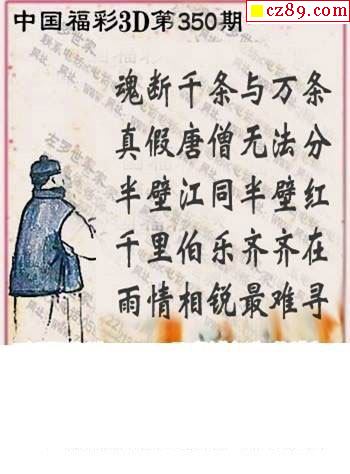 cz89.com
中国福彩3D第350期
魂断千条与万条
真假唐僧无法分
半壁江同半壁红
千里伯乐齐齐在
雨情相锐最难寻